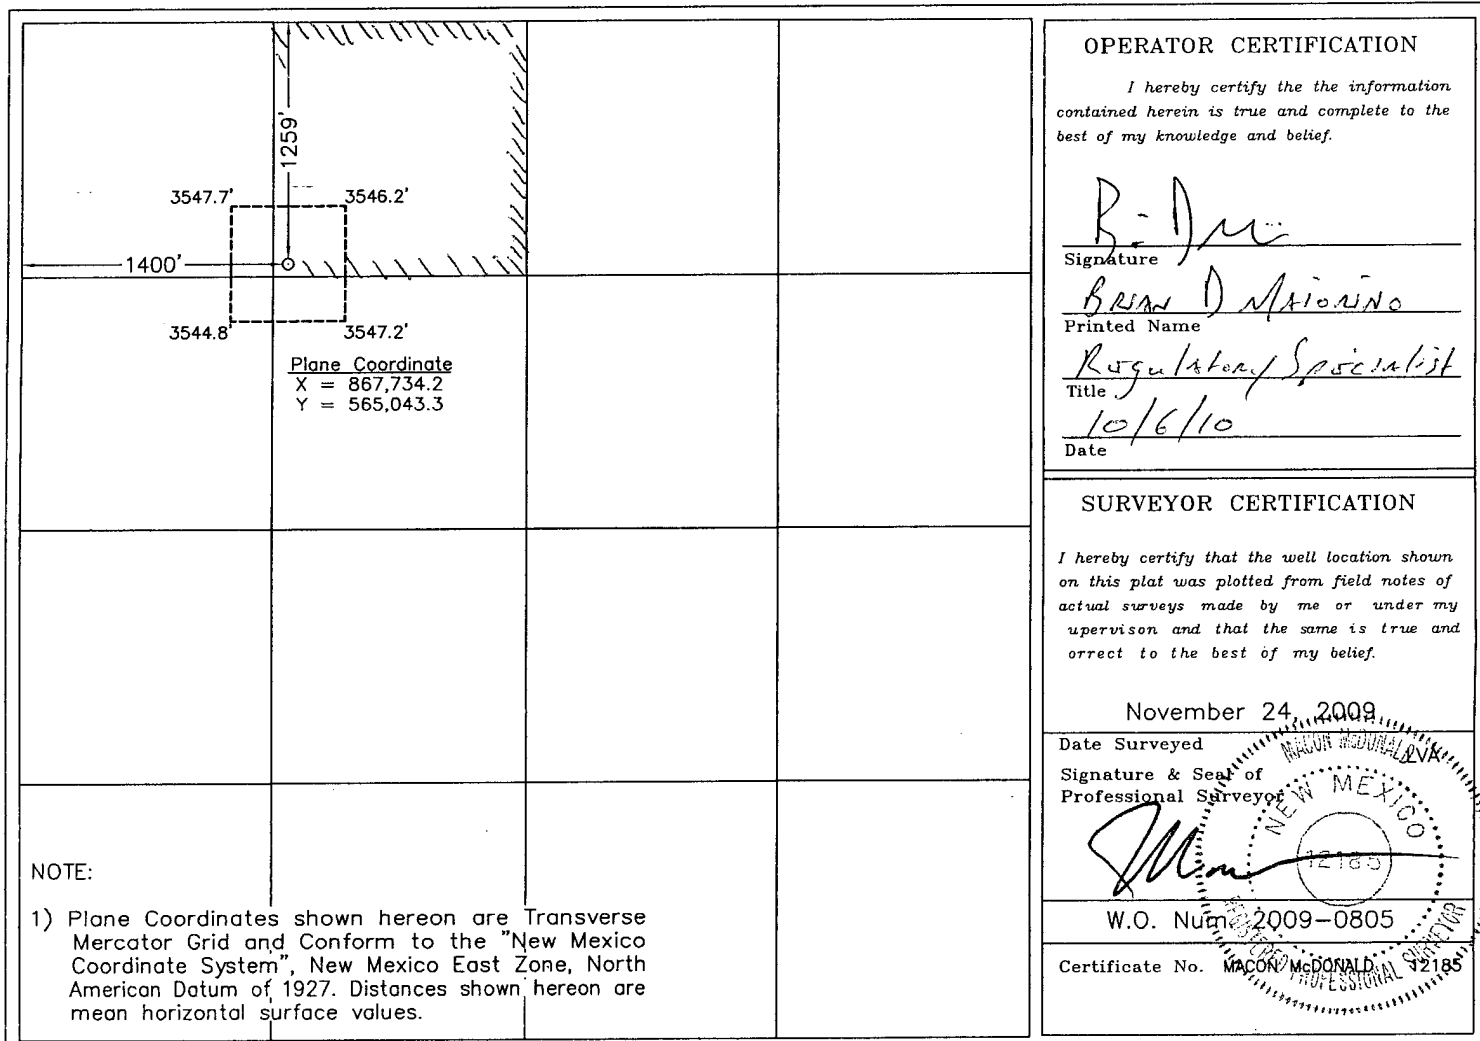 1259'
3547.7'
3546.2'
1400'
3544.8'
3547.2'
Plane Coordinate
X = 867,734.2
Y = 565,043.3
NOTE:
1) Plane Coordinates shown hereon are Transverse
Mercator Grid and Conform to the "New Mexico
Coordinate System", New Mexico East Zone, North
American Datum of 1927. Distances shown hereon are
mean horizontal surface values.
OPERATOR CERTIFICATION
I hereby certify the the information
contained herein is true and complete to the
best of my knowledge and belief.
Signature
BRIAN D MAIORINO
Printed Name
Regulatory Specialist
Title
10/6/10
Date
SURVEYOR CERTIFICATION
I hereby certify that the well location shown
on this plat was plotted from field notes of
actual surveys made by me or under my
upervison and that the same is true and
orrect to the best of my belief.
November 24, 2009
Date Surveyed
LVA
Signature & Seal of
Professional Surveyor
MACON McDONALD
NEW MEXICO
12185
REGISTERED PROFESSIONAL SURVEYOR
W.O. Num. 2009-0805
Certificate No. MACON McDONALD 12185